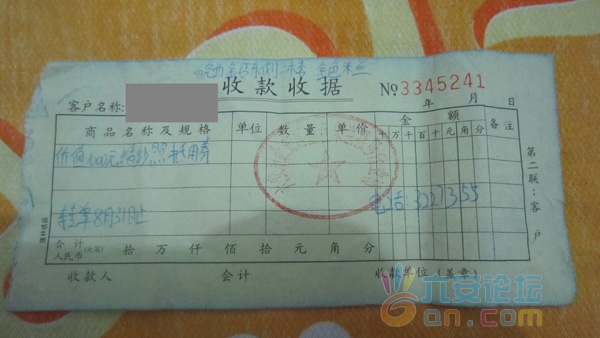 收款收据
No 3345241
客户名称: 年 月 日
商品名称及规格 单位 数量 单价 金额 备注
十万千百十元角分
价值1000元婚纱照抵用券
转单8月31日止
电话:3227355
合计人民币(大写) 拾 万 仟 佰 拾 元 角 分
收款人 会计 收款单位(盖章)
第二联:客户
六安论坛
6an.com